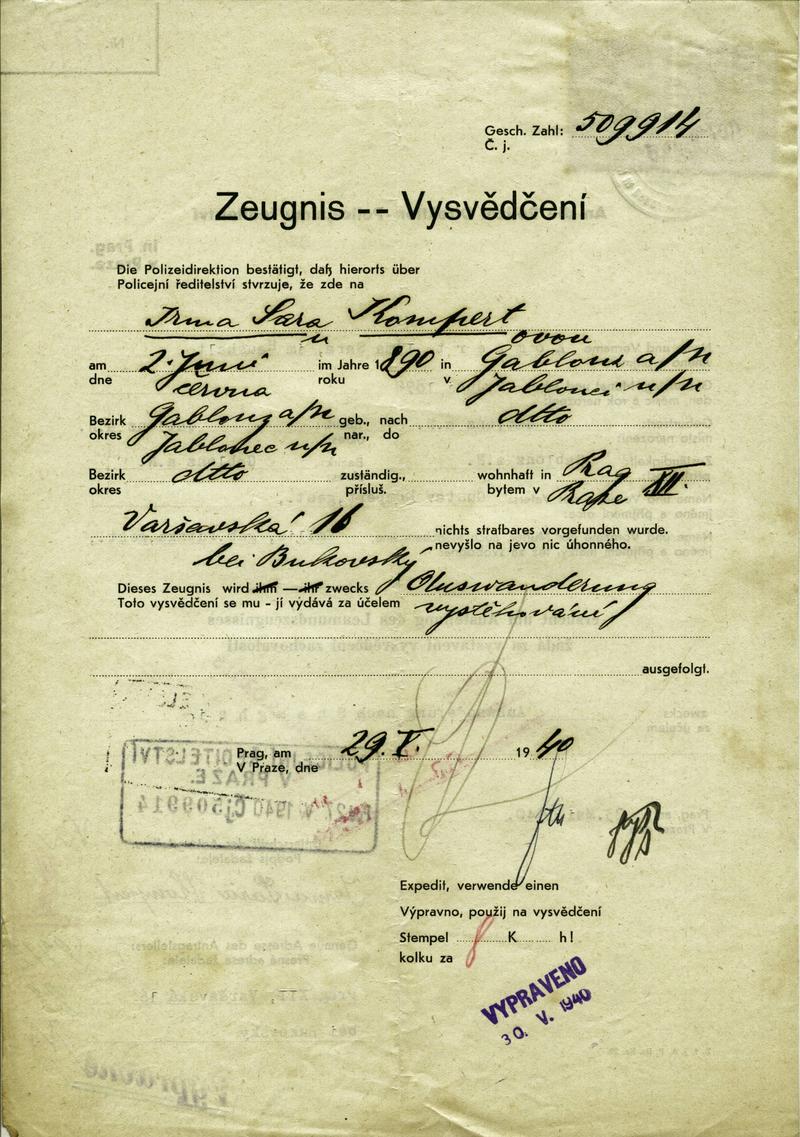 Gesch. Zahl: 509914
Č. j.
Zeugnis -- Vysvědčení
Die Polizeidirektion bestätigt, daß hierorts über
Policejní ředitelství stvrzuje, že zde na
Irma Sara Kompert
ovou
am 2. Juni im Jahre 1890 in Gablonz a/N
dne června roku v Jablonci n/N
Bezirk Gablonz a/N geb., nach dtto
okres Jablonec n/N nar., do
Bezirk dtto zuständig., wohnhaft in Prag XII.
okres přísluš. bytem v Praze
Varšavská 16 nichts strafbares vorgefunden wurde.
bei Bukovský nevyšlo na jevo nic úhonného.
Dieses Zeugnis wird ihm — ihr zwecks Auswanderung
Toto vysvědčení se mu - jí vydává za účelem vystěhování
ausgefolgt.
Prag, am 29. V. 1940
V Praze, dne
POLICEJNÍ ŘEDITELSTVÍ
V PRAZE.
27 V. 1940 Čj 509914
Expedit, verwende einen
Výpravno, použij na vysvědčení
Stempel 8 K h!
kolku za
VYPRAVENO
30. V. 1940